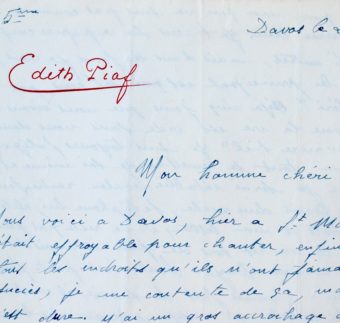 5ème
Davos le 2
Edith Piaf
Mon homme chéri
ous voici a Davos, hier a St Mo
était effroyable pour chanter, enfin
tous les indroits qu'ils n'ont jama
succès, je une contente de ça, ma
c'est dure. y'ai un gros accrochage a